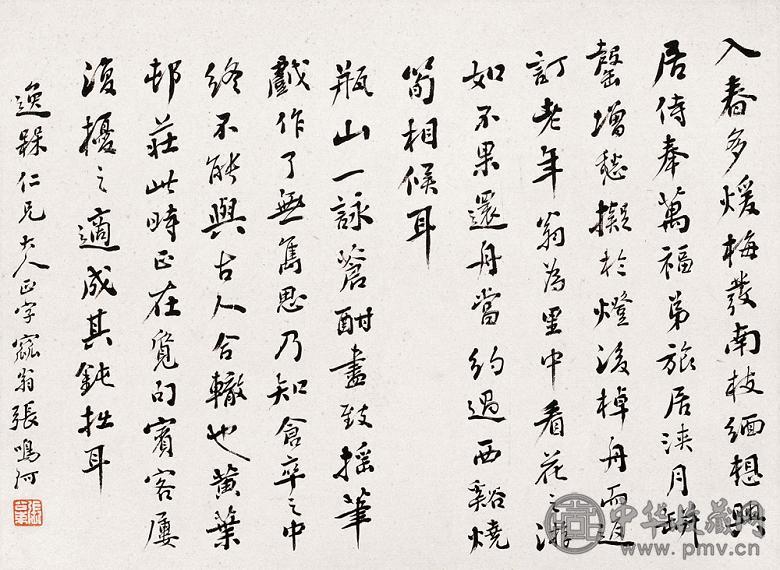 入春多煖梅發南枝緬想興
居侍奉萬福弟旅居浹月缾
罄增愁擬於燈後棹舟而過
訂老年翁為里中看花之游
如不果還舟當約過西谿燒
筍相候耳
瓶山一詠蒼酣盡致搖筆
戲作了無雋思乃知倉卒之中
終不能與古人合轍也黃葉
邨莊此時正在覓句賓客屢
復擾之適成其鈍拙耳
逸槑仁兄大人正字窳翁張鳴珂
中华收藏网
www.pmv.cn